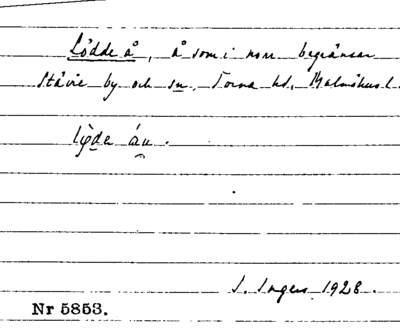 Lödde å, å som i norr begränsar
Stävie by och sn, Torna hd, Malmöhus l.
lø̀de áu.
I. Ingers 1928.
Nr 5853.